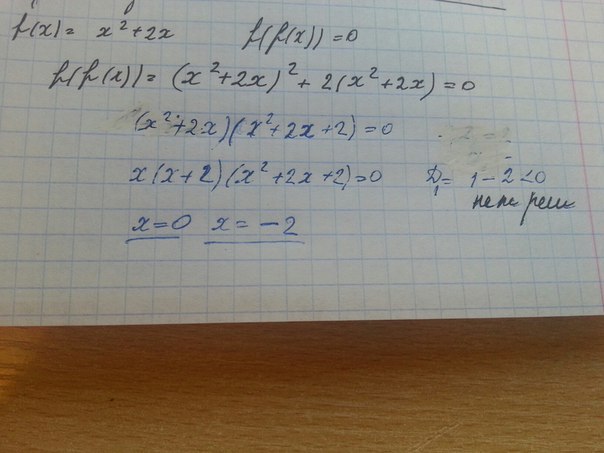 f(x) = x² + 2x f(f(x)) = 0
f(f(x)) = (x² + 2x)² + 2(x² + 2x) = 0
(x² + 2x)(x² + 2x + 2) = 0
x(x + 2)(x² + 2x + 2) = 0 D₁ = 1 - 2 < 0
x = 0 x = -2